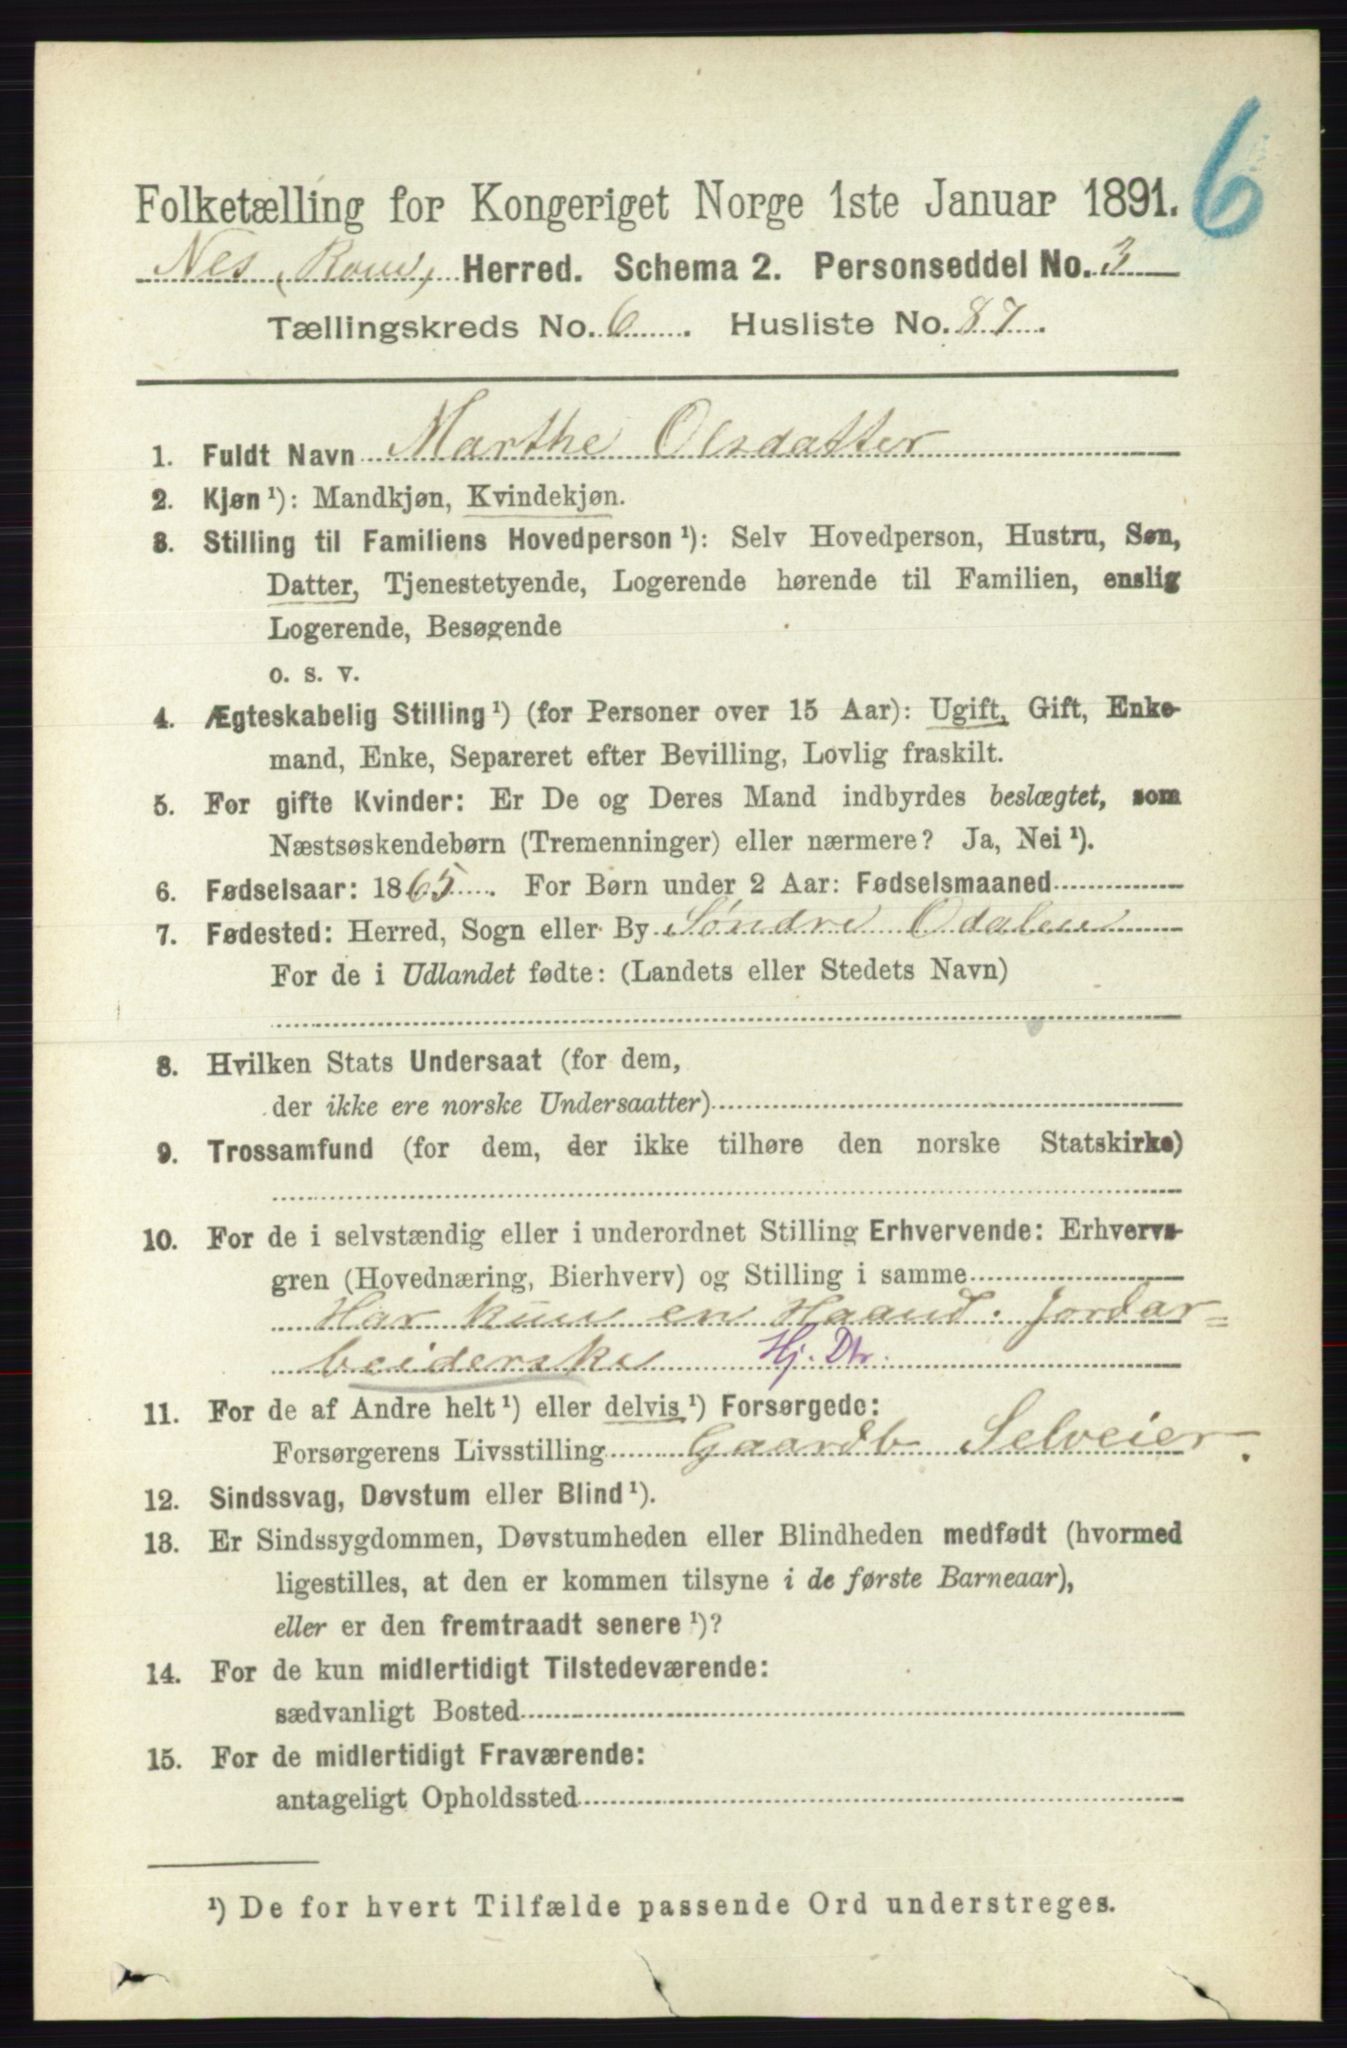 6
Folketælling for Kongeriget Norge 1ste Januar 1891.
Nes (Rom.) Herred. Schema 2. Personseddel No. 3
Tællingskreds No. 6. Husliste No. 87.
1. Fuldt Navn Marthe Olsdatter
2. Kjøn ¹): Mandkjøn, Kvindekjøn.
3. Stilling til Familiens Hovedperson ¹): Selv Hovedperson, Hustru, Søn,
Datter, Tjenestetyende, Logerende hørende til Familien, enslig
Logerende, Besøgende
o. s. v.
4. Ægteskabelig Stilling ¹) (for Personer over 15 Aar): Ugift, Gift, Enke-
mand, Enke, Separeret efter Bevilling, Lovlig fraskilt.
5. For gifte Kvinder: Er De og Deres Mand indbyrdes beslægtet, som
Næstsøskendebørn (Tremenninger) eller nærmere? Ja, Nei ¹).
6. Fødselsaar: 1865. For Børn under 2 Aar: Fødselsmaaned
7. Fødested: Herred, Sogn eller By Søndre Odalen
For de i Udlandet fødte: (Landets eller Stedets Navn)
8. Hvilken Stats Undersaat (for dem,
der ikke ere norske Undersaatter)
9. Trossamfund (for dem, der ikke tilhøre den norske Statskirke)
10. For de i selvstændig eller i underordnet Stilling Erhvervende: Erhvervs-
gren (Hovednæring, Bierhverv) og Stilling i samme
Har kun en Haand. Jordar-
beiderske Hj. Dtr.
11. For de af Andre helt ¹) eller delvis ¹) Forsørgede:
Forsørgerens Livsstilling Gaardb Selveier.
12. Sindssvag, Døvstum eller Blind ¹).
13. Er Sindssygdommen, Døvstumheden eller Blindheden medfødt (hvormed
ligestilles, at den er kommen tilsyne i de første Barneaar),
eller er den fremtraadt senere ¹)?
14. For de kun midlertidigt Tilstedeværende:
sædvanligt Bosted
15. For de midlertidigt Fraværende:
antageligt Opholdssted
¹) De for hvert Tilfælde passende Ord understreges.